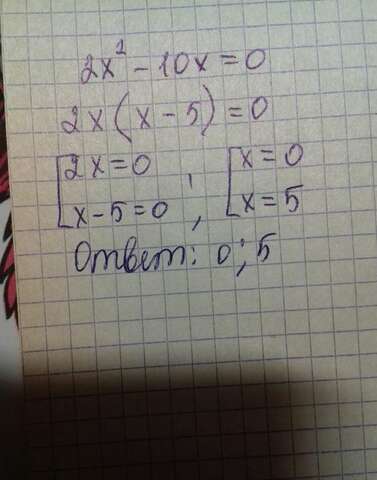 2x² - 10x = 0
2x(x - 5) = 0
[2x = 0, [x = 0
[x - 5 = 0, [x = 5
Ответ: 0; 5